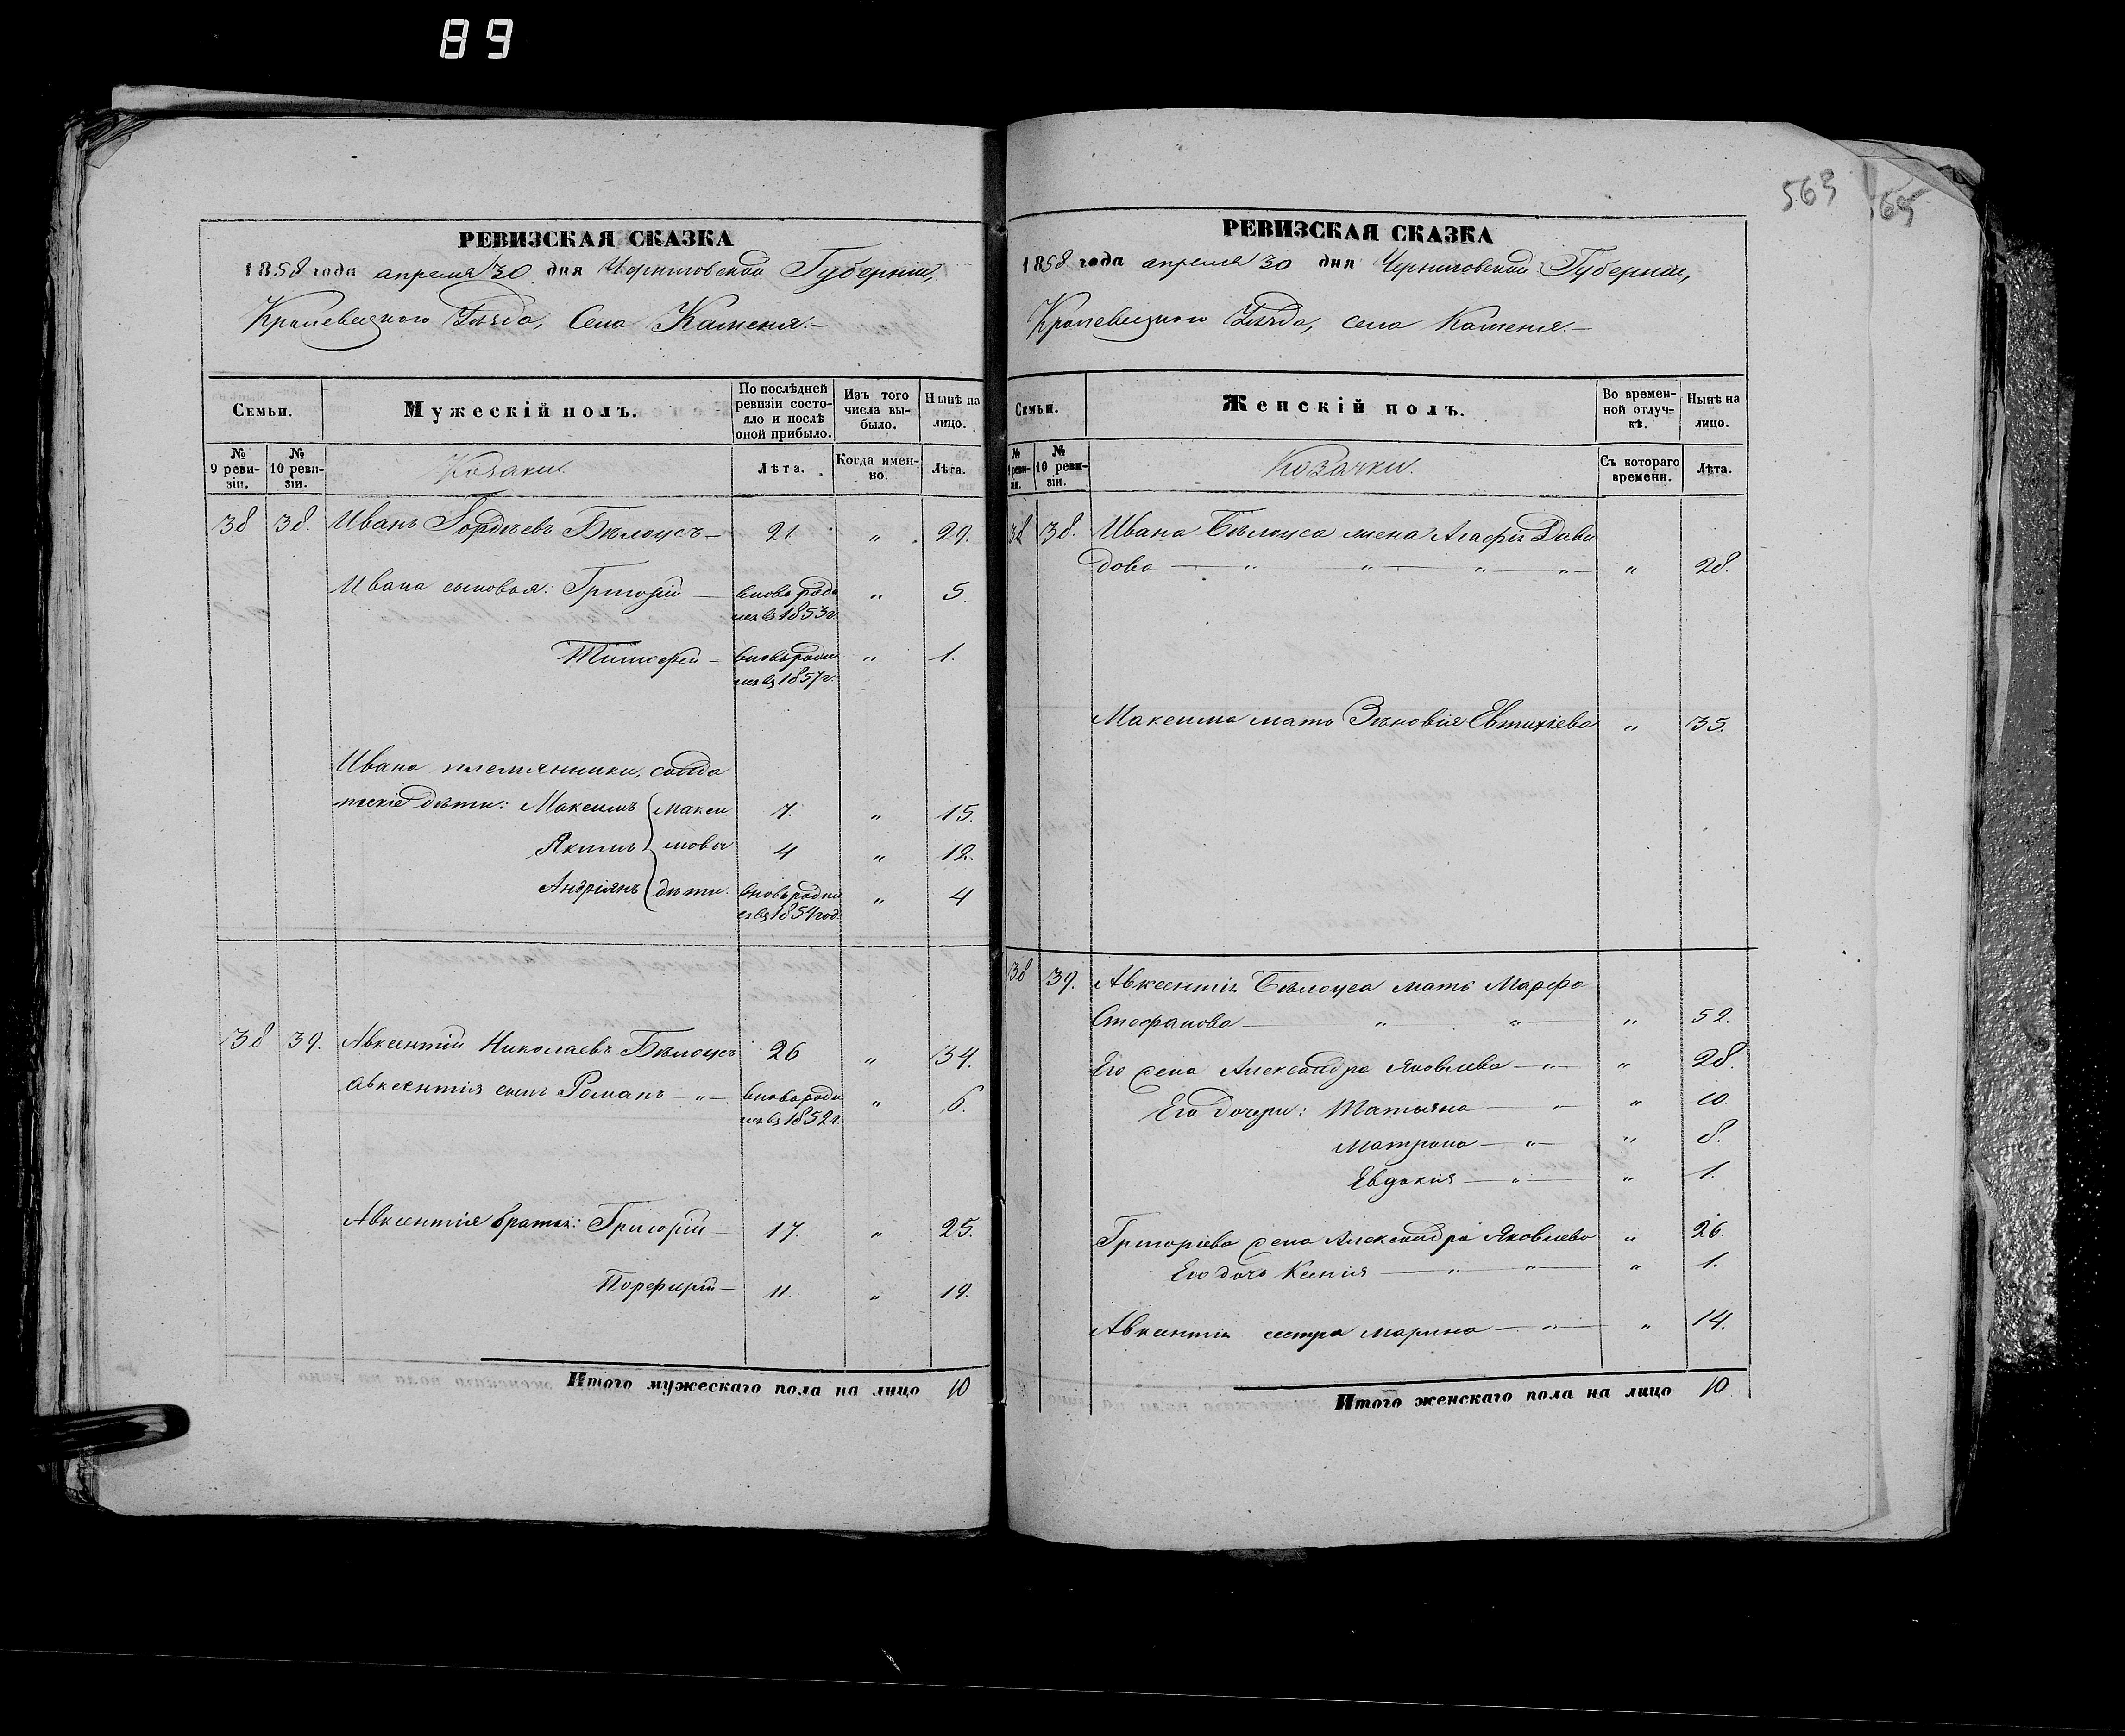 89
563
РЕВИЗСКАЯ СКАЗКА
1858 года апреля 30 дня Черниговской Губерніи,
Кролевецкого Уѣзда, Села Каменя.—
Семьи.
Мужескій полъ.
По послѣдней ревизіи состояло и послѣ оной прибыло.
Изъ того числа выбыло.
Нынѣ на лицо.
№ 9 ревизіи.
№ 10 ревизіи.
Козаки.
Лѣта.
Когда именно.
Лѣта.
38 38. Иванъ Гордѣевъ Бѣлоусъ— 21 " 29.
Ивана сыновья: Григорій — вновь роди " 5.
лся въ 1853г
Тимофей — вновь роди " 1.
лся въ 1857г.
Ивана племянники, солда
тскіе дѣти: Максимъ Макси 7. " 15.
Якимъ мовы 4 " 12.
Андріянъ дѣти. вновь родил " 4
ся въ 1854 год.
38 39. Авксентій Николаевъ Бѣлоусъ 26 " 34.
Авксентія сынъ Романъ — " — вновь роди " 6.
лся въ 1852г.
Авксентія братья: Григорій — 17. " 25.
Порфирій — 11. " 19.
Итого мужескаго пола на лицо 10
РЕВИЗСКАЯ СКАЗКА
1858 года апреля 30 дня Черниговской Губерніи,
Кролевецкого Уѣзда, села Каменя.—
Семьи.
Женскій полъ.
Во временной отлучкѣ.
Нынѣ на лицо.
№ 9 ревизіи.
№ 10 ревизіи.
Козачки.
Съ котораго времени.
Лѣта.
38 38. Ивана Бѣлоуса жена Агафія Дави
дова — " — " — " — " — " 28.
Максима мать Зѣновія Евтихіева " 35.
38 39. Авксентія Бѣлоуса мать Марфа
Стефанова — " — " — " 52.
Его жена Александра Яковлева — " — " 28.
Его дочери: Татьяна — " — " 10.
Матрона — " — " 8.
Евдокия — " — " 1.
Григоріева жена Александра Яковлева " 26.
Его дочь Ксенія — " — " — " 1.
Авксентія сестра Марина — " — " 14.
Итого женскаго пола на лицо 10